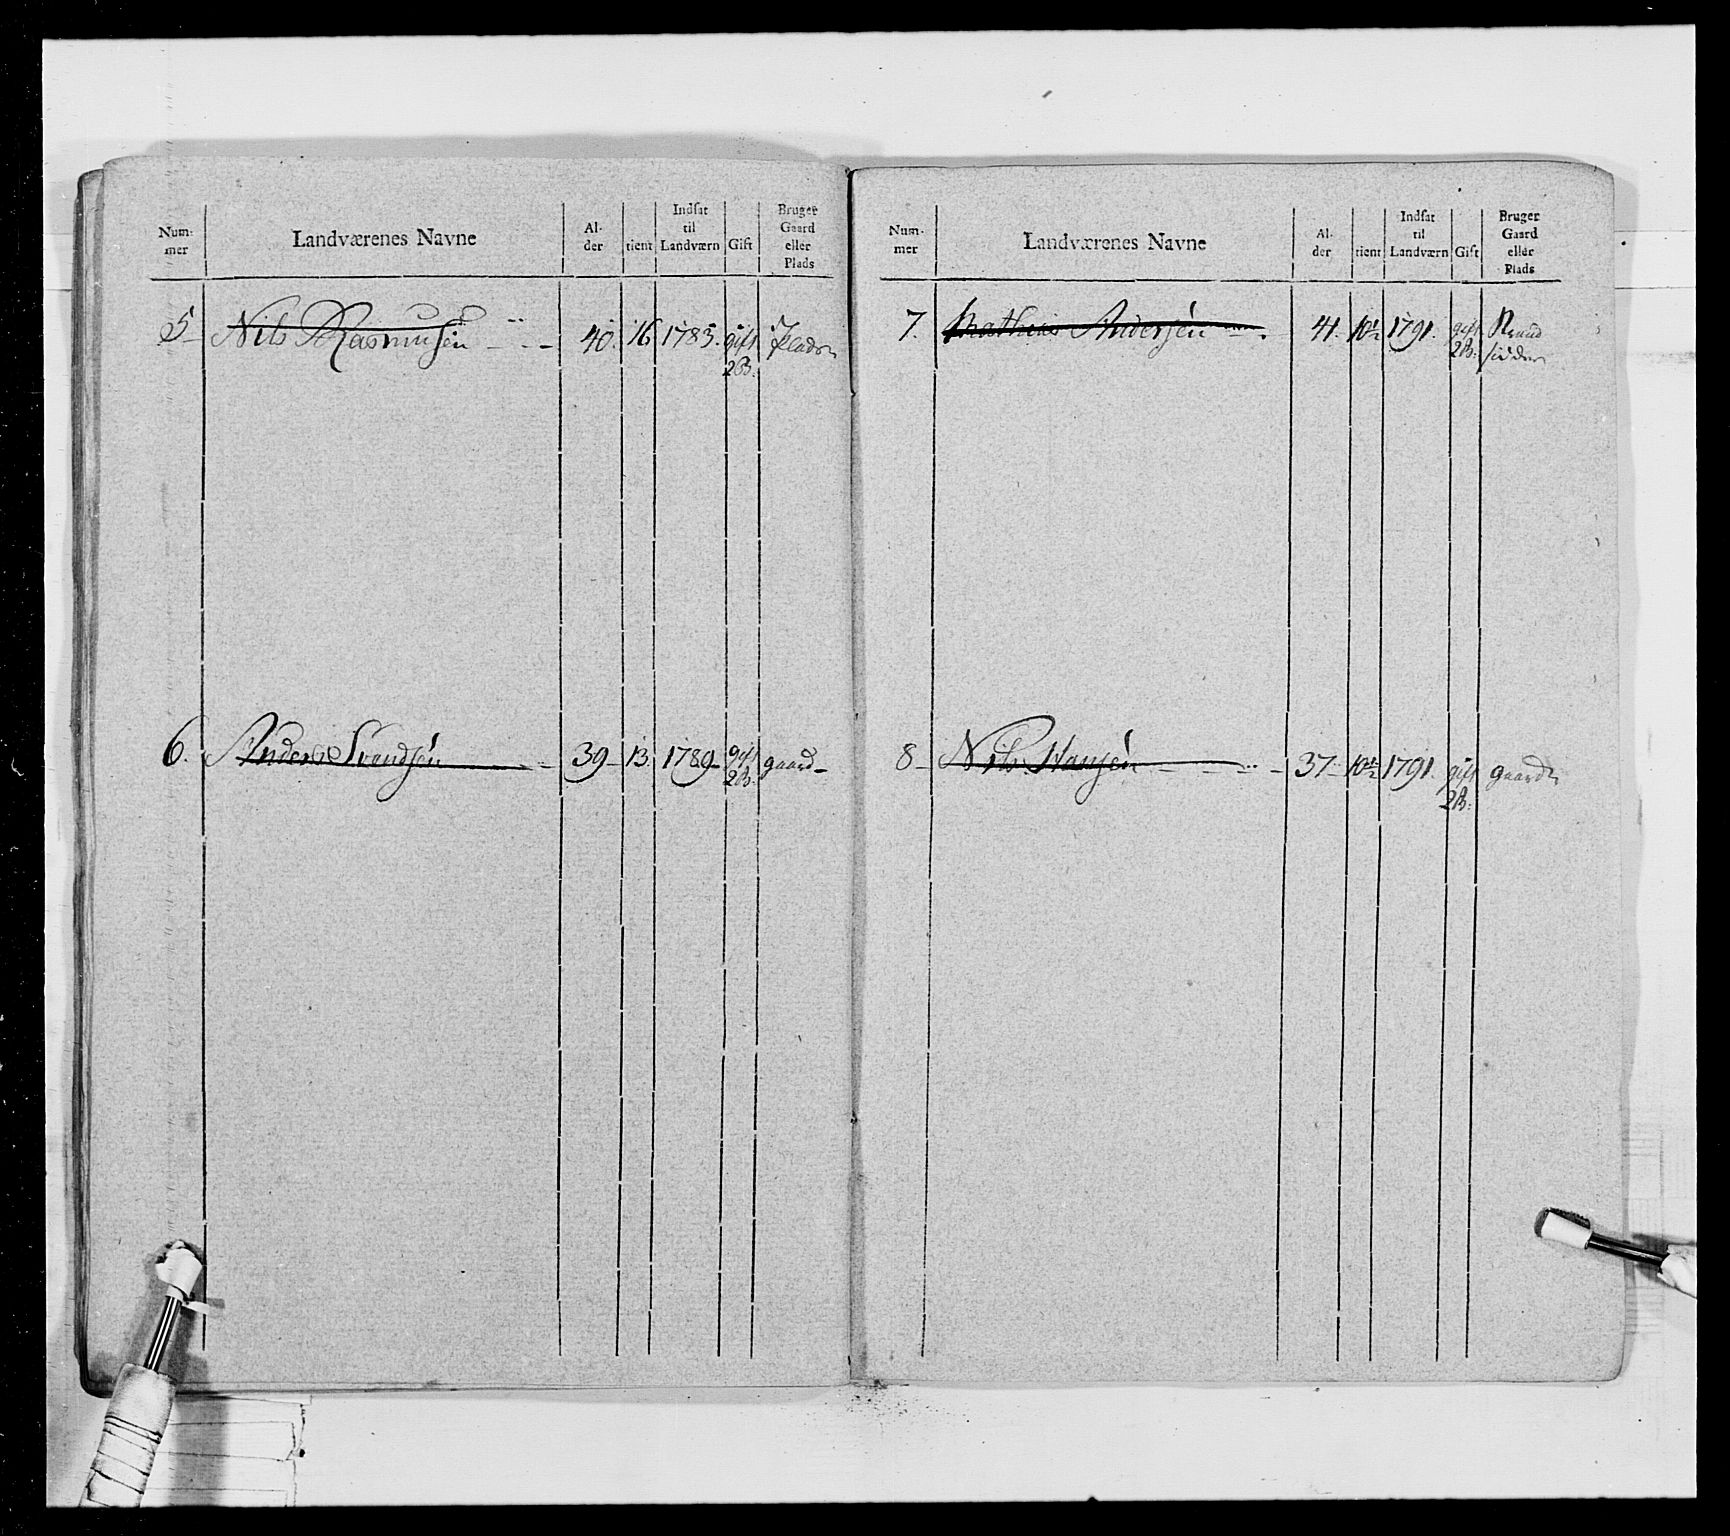 Num-
mer
Landværenes Navne
Al-
der
tient
Indsat
til
Landværn
Gift
Bruger
Gaard
eller
Plads
5 Nils Rasmusen 40. 16 1785. gift Plads
2B.
6. Anders Svendsen 39 13. 1789 gift gaard
2B.
Num-
mer
Landværenes Navne
Al-
der
tient
Indsat
til
Landværn
Gift
Bruger
Gaard
eller
Plads
7. Mathias Andersen 41. 10½ 1791. gift Strand
2B. sidder
8 Nils Hansen 37 10½ 1791. gift gaard
2B.